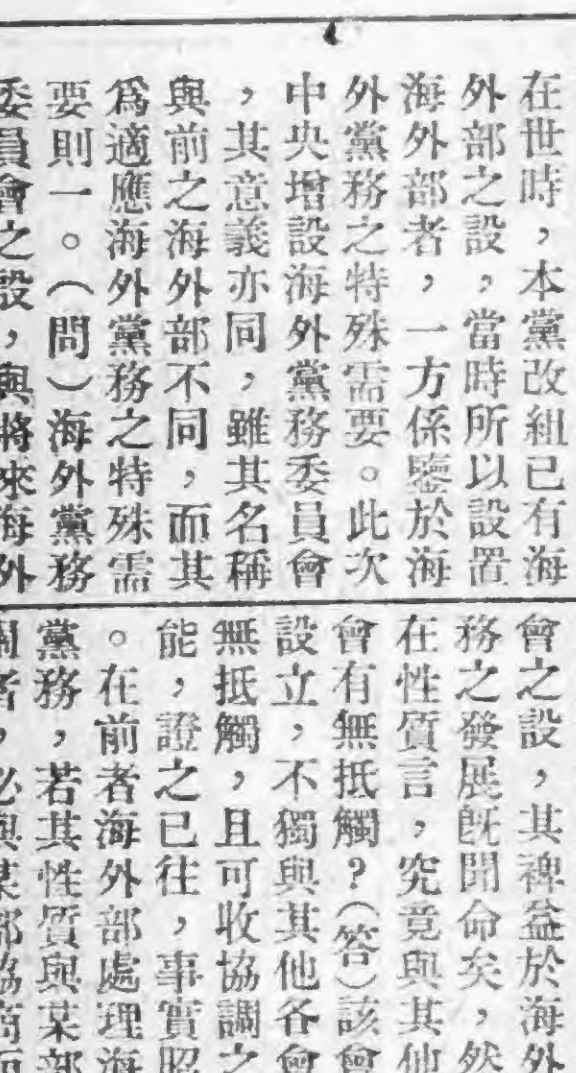 在世時，本黨改組已有海
外部之設，當時所以設置
海外部者，一方係鑒於海
外黨務之特殊需要。此次
中央增設海外黨務委員會
，其意義亦同，雖其名稱
與前之海外部不同，而其
爲適應海外黨務之特殊需
要則一。（問）海外黨務
委員會之設，與將來海外
會之設，其裨益於海外
務之發展既聞命矣，然
在性質言，究竟與其他
會有無抵觸？（答）該會
設立，不獨與其他各會
無抵觸，且可收協調之
能，證之已往，事實照
。在前者海外部處理海
黨務，若其性質與某部
關者，必與某部協商而